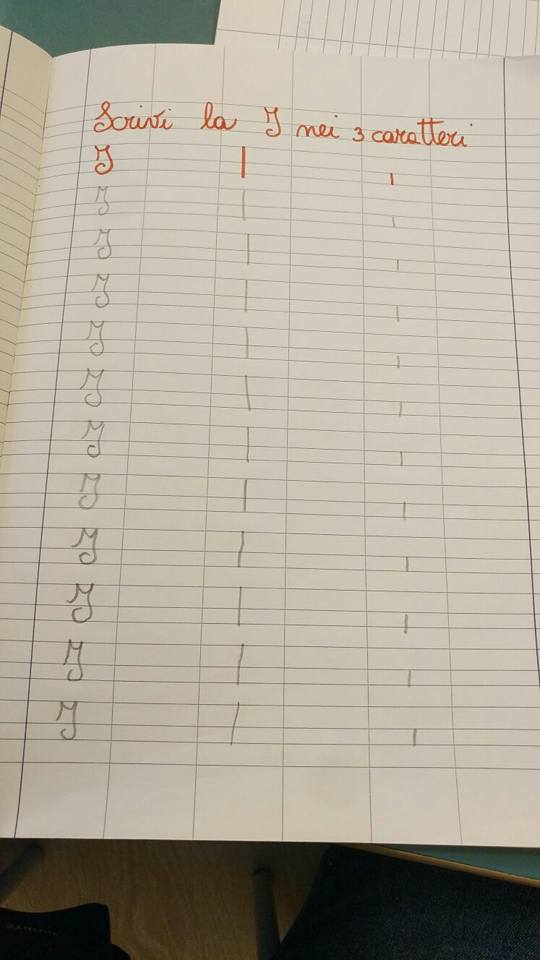 Scrivi la I nei 3 caratteri
I I i
I I i
I I i
I I i
I I i
I I i
I I i
I I i
I I i
I I i
I I i
I I i